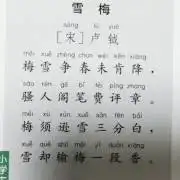 雪 梅
sòng lú yuè
[宋] 卢 钺
méi xuě zhēng chūn wèi kěn xiáng
梅 雪 争 春 未 肯 降 ，
sāo rén gē bǐ fèi píng zhāng
骚 人 阁 笔 费 评 章 。
méi xū xùn xuě sān fēn bái
梅 须 逊 雪 三 分 白 ，
xuě què shū méi yí duàn xiāng
雪 却 输 梅 一 段 香 。
小学